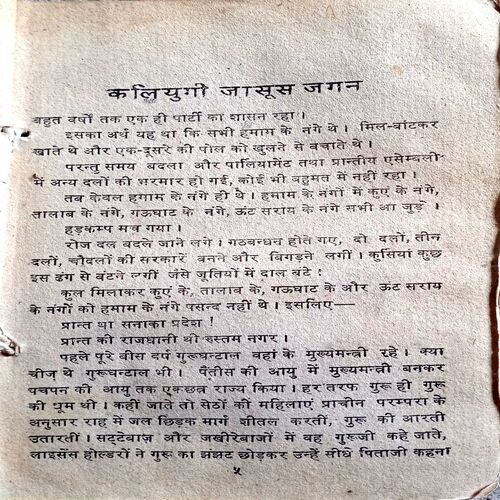 कलियुगी जासूस जगन
बहुत वर्षों तक एक ही पार्टी का शासन रहा।
इसका अर्थ यह था कि सभी हमाम के नंगे थे। मिल-बांटकर
खाते थे और एक-दूसरे की पोल को खुलने से बचाते थे।
परन्तु समय बदला और पार्लियामेंट तथा प्रान्तीय एसेम्बली
में अन्य दलों की भरमार हो गई, कोई भी बहुमत में नहीं रहा।
तब केवल हमाम के नंगे ही थे। हमाम के नंगों में कुएं के नंगे,
तालाब के नंगे, गऊघाट के नंगे, ऊंट सराय के नंगे सभी आ जुड़े।
हड़कम्प मच गया।
रोज दल बदले जाने लगे। गठबन्धन होते गए, दो दलों, तीन
दलों, चौदलों की सरकारें बनने और बिगड़ने लगीं। कुर्सियां कुछ
इस ढंग से बंटने लगीं जैसे जूतियों में दाल बंटे!
कुल मिलाकर कुएं के, तालाब के, गऊघाट के और ऊंट सराय
के नंगों को हमाम के नंगे पसन्द नहीं थे। इसलिए—
प्रान्त था सनाका प्रदेश!
प्रान्त की राजधानी थी रुस्तम नगर।
पहले पूरे बीस वर्ष गुरूघन्टाल वहां के मुख्यमन्त्री रहे। क्या
चीज थे गुरूघन्टाल भी। पैंतीस की आयु में मुख्यमन्त्री बनकर
पचपन की आयु तक एकछत्र राज्य किया। हर तरफ गुरू ही गुरू
की धूम थी। कहीं जाते तो सेठों की महिलाएं प्राचीन परम्परा के
अनुसार राह में जल छिड़क मार्ग शीतल करतीं, गुरू की आरती
उतारतीं। सट्टेबाज़ और जखीरेबाजों में वह गुरूजी कहे जाते,
लाइसेंस होल्डरों ने गुरू का झंझट छोड़कर उन्हें सीधे पिताजी कहना
५